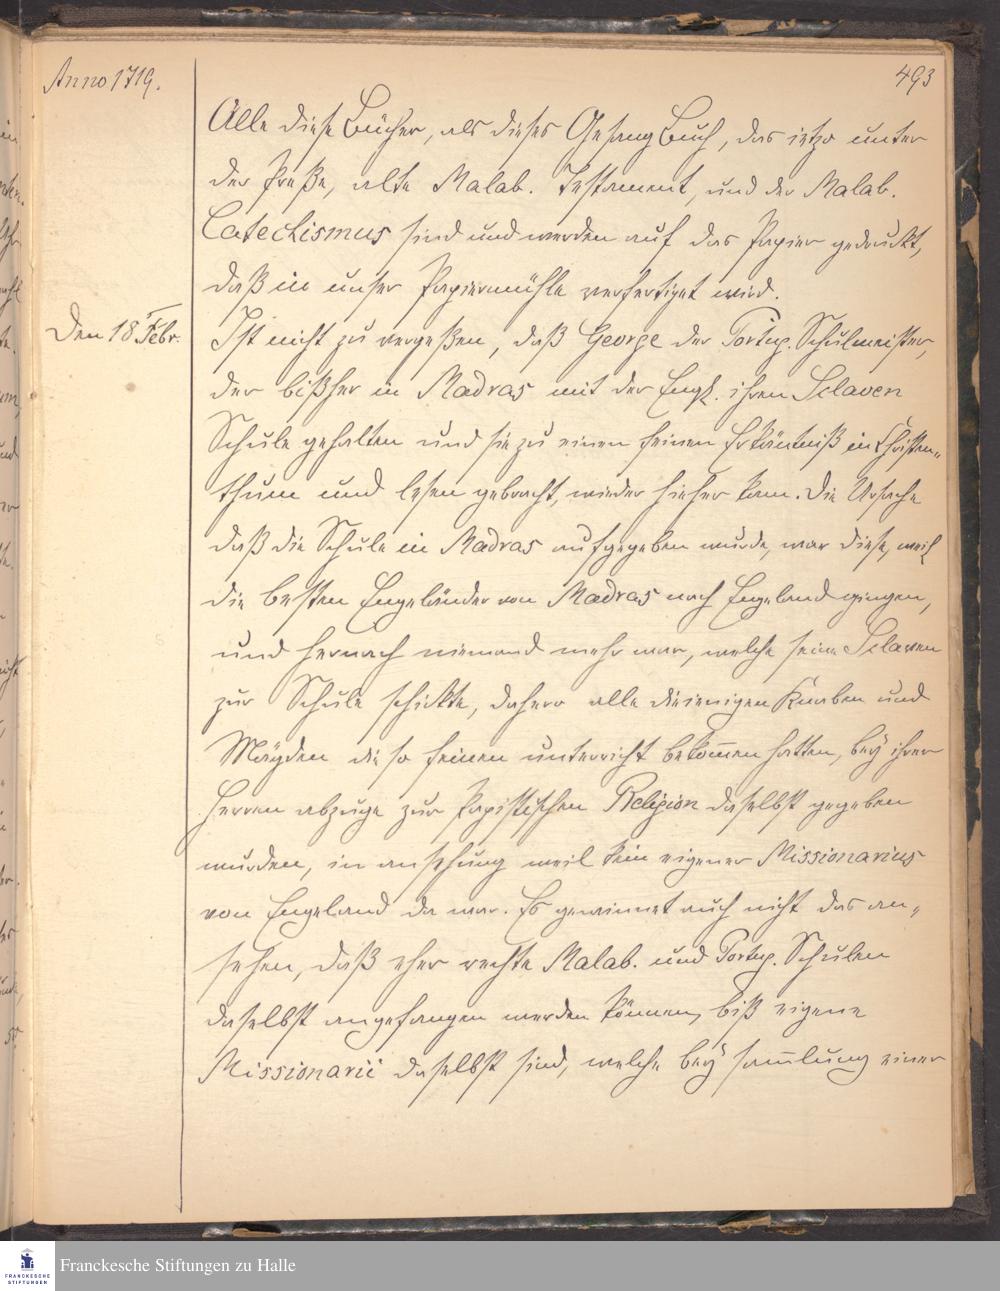 Anno 1719.
493
Alle diese Bücher, als dieses Gesang Buch, das ietzo unter
der Preße, alte Malab. Testament, und der Malab.
Catechismus sind und werden auf das Papier gedruckt,
daß in unser Papiermühle verfertiget wird.
Den 18 Febr.
Ist nicht zu vergeßen, daß George der Portug. Schulmeister,
der bißher in Madras mit der Engl. ihren Sclaven
Schule gehalten und sie zu einen feinen Erkäntniß in Christen„
thum und lesen gebracht, wieder hieher kam. Die Ursache
daß die Schule in Madras aufgegeben wurde, war diese, weil
die besten Engeländer von Madras nach Engeland gingen,
und hernach niemand mehr war, welche seine Sclaven
zur Schule schickte, dahero alle dieienigen Knaben und
Mägden die so feinen unterricht bekom̅en hatten, bey ihrer
Herren abzuge zur Papistischen Religion daselbst gegeben
wurden, in ansehung weil kein eigener Missionarius
von Engeland da war. Es gewinnet auch nicht das an„
sehen, daß eher rechte Malab. und Portug. Schulen
daselbst angefangen werden können, biß eigene
Missionarii daselbst sind, welche bey sam̅lung einer
Franckesche Stiftungen zu Halle
FRANCKESCHE
STIFTUNGEN